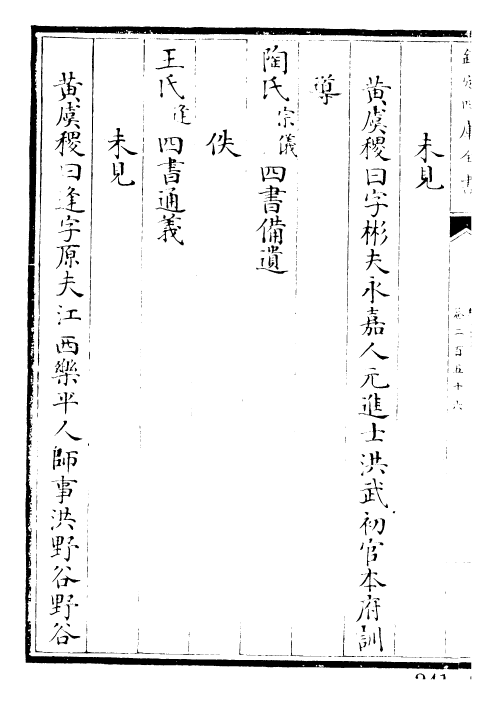 欽定四庫全書
卷二百五十六
未見
黄虞稷曰字彬夫永嘉人元進士洪武初官本府訓
導
陶氏宗儀四書備遺
佚
王氏逢四書通義
未見
黄虞稷曰逢字原夫江西樂平人師事洪野谷野谷